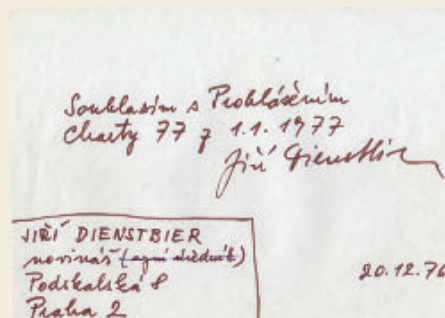 Souhlasím s Prohlášením
Charty 77 z 1.1.1977
Jiří Dienstbier
JIŘÍ DIENSTBIER
novinář (nyní úředník)
Podskalská 8
Praha 2
20.12.76